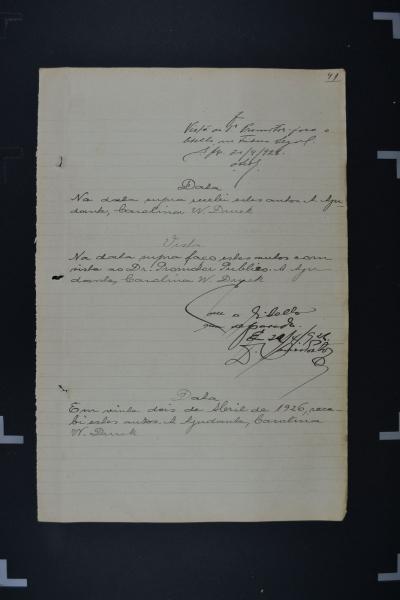 41
Vista ao Dr. Promotor para o
Libello no prazo legal.
21/4/926.
Data
Na data supra recebi estes autos. A Aju-
dante, Carolina W. Druck
Vista
Na data supra faço estes autos com
vista ao Dr. Promotor Publico. A Aju-
dante, Carolina W. Druck
Com o Libello
em separado.
E. 22/4/926
Data
Em vinte dois de Abril de 1926, rece-
bi estes autos. A Ajudante, Carolina
W. Druck